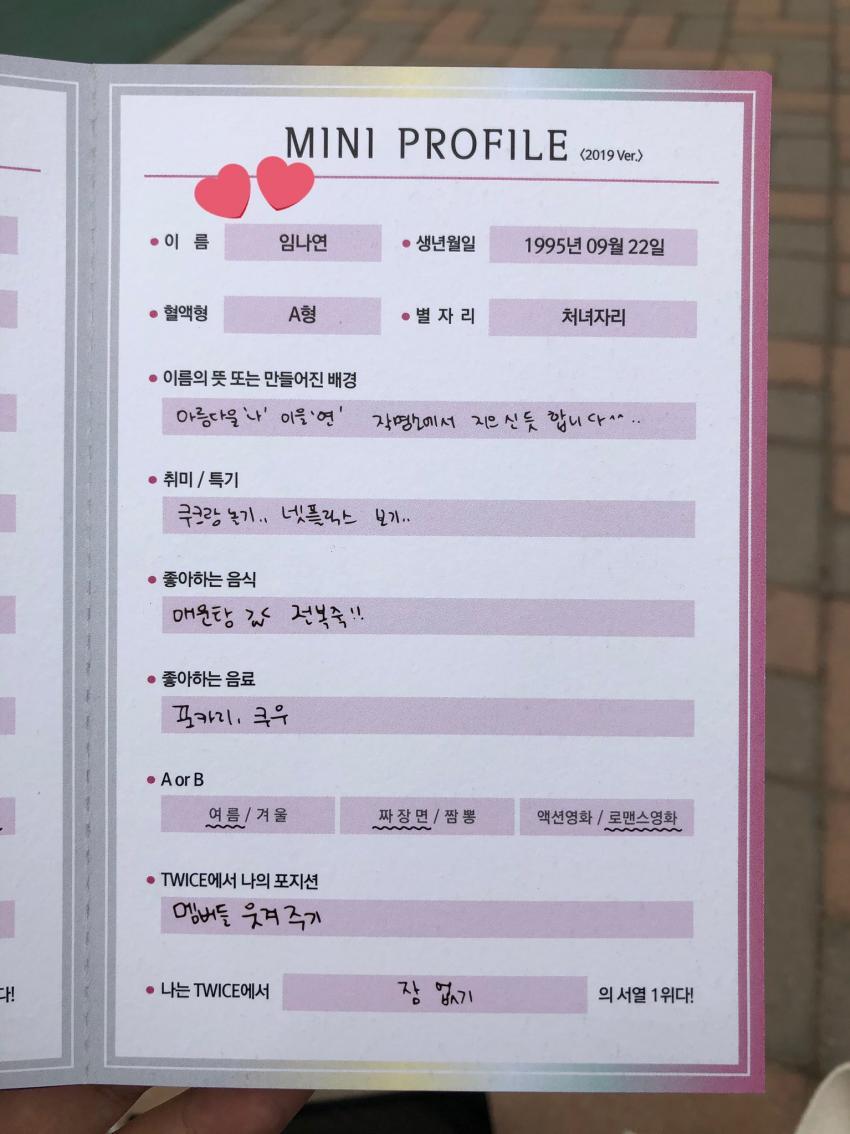 MINI PROFILE 〈2019 Ver.〉
• 이 름 임나연 • 생년월일 1995년 09월 22일
• 혈액형 A형 • 별 자 리 처녀자리
• 이름의 뜻 또는 만들어진 배경
아름다울 '나' 이을 '연' 작명소에서 지으신듯 합니다^^..
• 취미 / 특기
쿠크랑 놀기.. 넷플릭스 보기..
• 좋아하는 음식
매운탕 전복죽!!
• 좋아하는 음료
포카리, 쿠우
• A or B
여 름 / 겨 울 짜 장 면 / 짬 뽕 액션영화 / 로맨스영화
• TWICE에서 나의 포지션
멤버들 웃겨 주기
• 나는 TWICE에서 잠 없기 의 서열 1위다!
다!